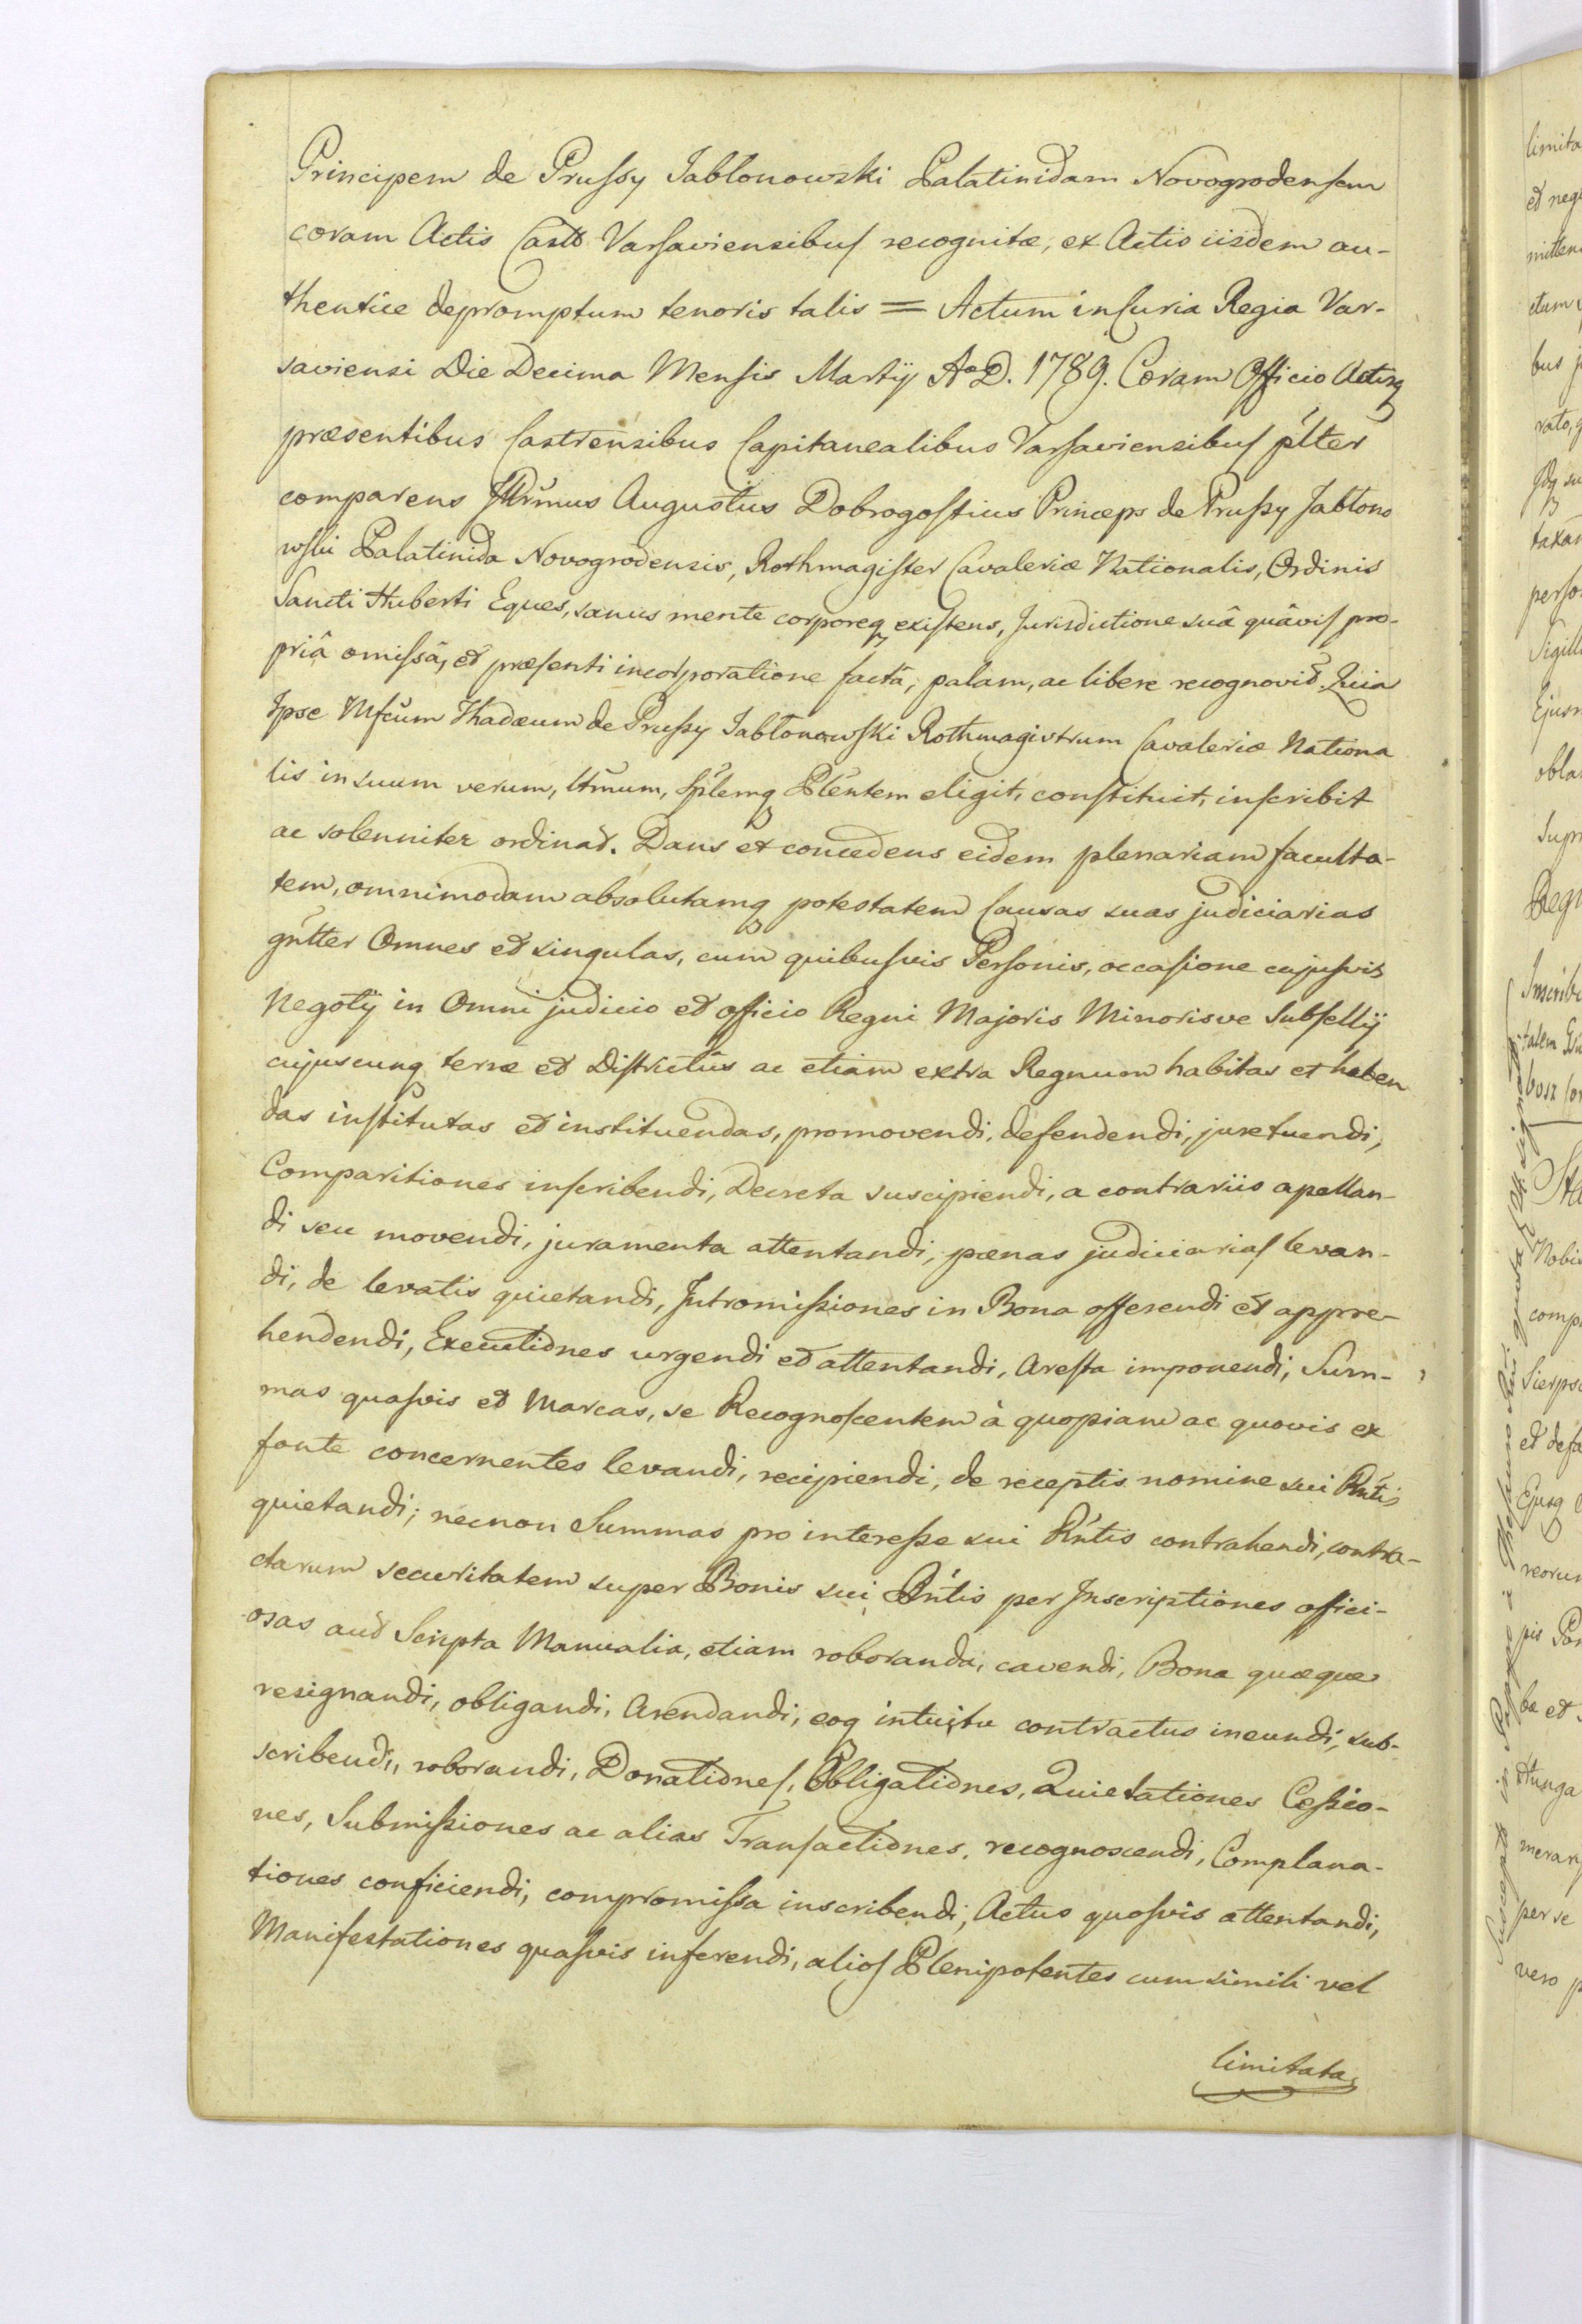 Principem de Prussy Jabłonowski Palatinidam Novogrodensem
coram Actis Castr. Varsaviensibus recognitæ, ex Actis iisdem au-
thentice depromptum tenoris talis = Actum in Curia Regia Var-
saviensi Die Decima Mensis Martij Ao D. 1789. Coram Officio Actisq
præsentibus Castrensibus Capitanealibus Varsaviensibus plter
comparens Illrimus Augustus Dobrogostius Princeps de Prussy Jabłono
wski Palatinida Novogrodensis, Rothmagister Cavaleriæ Nationalis, Ordinis
Sancti Huberti Eques, sanus mente corporeq existens, Jurisdictione suâ quâvis pro-
priâ omissâ, et præsenti incorporatione factâ, palam, ac libere recognovit. Quia
Ipse Mfcum Thadæum de Prussy Jabłonowski Rothmagistrum Cavaleriæ Nationa
lis in suum verum, ltmum, Splemq Plentem eligit, constituit, inscribit
ac solenniter ordinat. Dans et concedens eidem plenariam faculta-
tem, omnimodam absolutamq potestatem Causas suas judiciarias
gnlter Omnes et singulas, cum quibusvis Personis, occasione cujusvis
Negotij in Omni judicio et officio Regni Majoris Minorisve Subsellij
cujuscunq terræ et Districtûs ac etiam extra Regnum habitas et haben
das institutas et instituendas, promovendi, defendendi, jure tuendi,
Comparitiones inscribendi, Decreta suscipiendi, a contrariis apellan-
di seu movendi, juramenta attentandi, pænas judiciarias levan-
di, de levatis quietandi, Intromissiones in Bona offerendi et appre-
hendendi, Executiones urgendi et attentandi, Aresta imponendi, Sum-
mas quasvis et Marcas, se Recognoscentem à quopiam ac quovis ex
fonte concernentes levandi, recipiendi, de receptis nomine sui Rntis
quietandi; necnon Summas pro interesse sui Rntis contrahendi, contra-
ctarum securitatem super Bonis sui Rntis per Inscriptiones offici-
osas aut Scripta Manualia, etiam roboranda, cavendi, Bona quæque
resignandi, obligandi, Arendandi, eoq intuitu contractus ineundi, sub-
scribendi, roborandi, Donationes, Obligationes, Quietationes Cessio-
nes, Submissiones ac alias Transactiones, recognoscendi, Complana-
tiones conficiendi, compromissa inscribendi, Actus quosvis attentandi,
Manifestationes quasvis inferendi, alios Plenipotentes cum simili vel
limitata